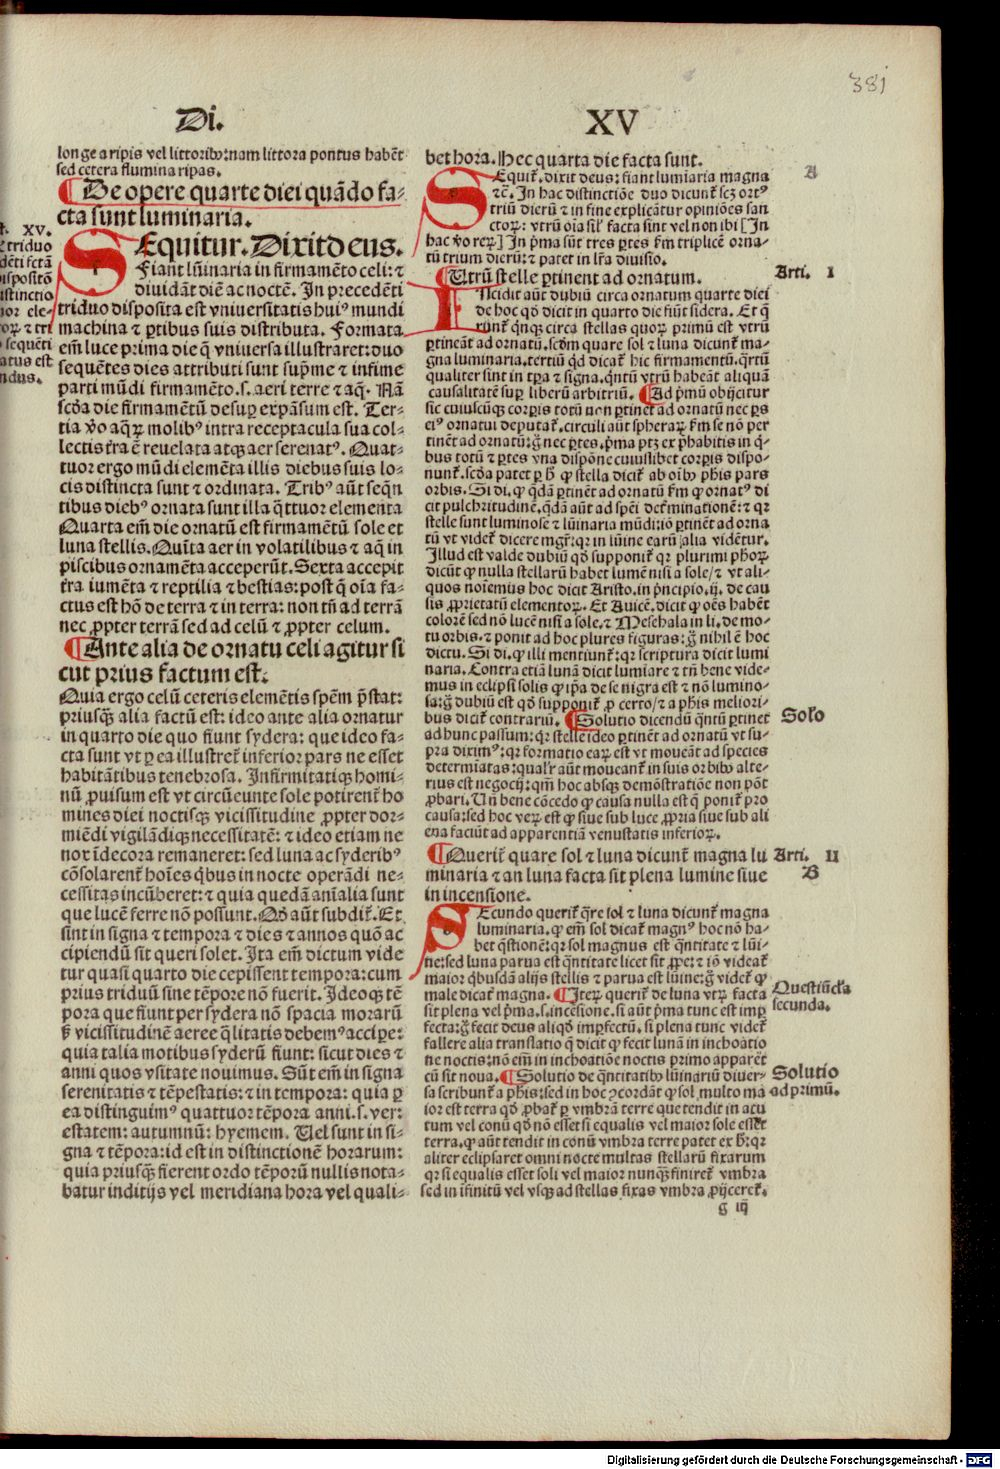 381
Di.
XV
longe a ripis vel littoribꝰ: nam littora pontus habēt
sed cetera flumina ripas.
¶ De opere quarte diei quādo fa-
cta sunt luminaria.
SEquitur. Dixit deus.
Fiant lūinaria in firmamēto celi: ⁊
diuidāt diē ac noctē. In precedēti
triduo disposita est vniuersitatis huiꝰ mundi
machina ⁊ ꝑtibus suis distributa. Formata
em̄ luce prima die q̄ vniuersa illustraret: duo
sequētes dies attributi sunt suꝑme ⁊ infime
parti mūdi firmamēto.s. aeri terre ⁊ aq̄. Nā
scd̓a die firmamētū desuꝑ expāsum est. Ter-
tia ꝟo aqꝝ molibꝰ intra receptacula sua col-
lectis tr̄a ē reuelata atqꝫ aer serenatꝰ. Quat-
tuor ergo mūdi elemēta illis diebus suis lo-
cis distincta sunt ⁊ ordinata. Tribꝰ aūt seqn̄
tibus diebꝰ ornata sunt illa q̄ttuor elementa
Quarta em̄ die ornatū est firmamētū sole et
luna stellis. Quīta aer in volatilibus ⁊ aq̄ in
piscibus ornamēta acceperūt. Sexta accepit
tr̄a iumēta ⁊ reptilia ⁊ bestias: post q̄ oīa fa-
ctus est hō de terra ⁊ in terra: non tn̄ ad terrā
nec ꝓpter terrā sed ad celū ⁊ ꝓpter celum.
¶ Ante alia de ornatu celi agitur si
cut prius factum est.
Quia ergo celū ceteris elemētis spēm p̄stat:
priusqꝫ alia factū est: ideo ante alia ornatur
in quarto die quo fiunt sydera: que ideo fa-
cta sunt vt ꝑ ea illustret̄ inferior pars ne esset
habitātibus tenebrosa. Infirmitatiqꝫ homi-
nū ꝓuisum est vt circūeunte sole potirent̄ ho
mines diei noctisqꝫ vicissitudine ꝓpter dor-
miēdi vigilādiqꝫ necessitatē: ⁊ ideo etiam ne
nox īdecora remaneret: sed luna ac syderibꝰ
cōsolarent̄ hoīes qͥbus in nocte operādi ne-
cessitas incūberet: ⁊ quia quedā aīalia sunt
que lucē ferre nō possunt. Qd̓ aūt subdit̄. Et
sint in signa ⁊ tempora ⁊ dies ⁊ annos quō ac
cipiendū sit queri solet. Ita em̄ dictum vide
tur quasi quarto die cepissent tempora: cum
prius triduū sine tēpore nō fuerit. Ideoqꝫ tē
pora que fiunt per sydera nō spacia morarū
sꝫ vicissitudinē aeree q̄litatis debemꝰ acciꝑe:
quia talia motibus syderū fiunt: sicut dies ⁊
anni quos vsitate nouimus. Sūt em̄ in signa
serenitatis ⁊ tēpestatis: ⁊ in tempora: quia ꝑ
ea distinguimꝰ quattuor tēpora anni.s. ver:
estatem: autumnū: hyemem. Uel sunt in si-
gna ⁊ tēpora: id est in distinctionē horarum:
quia priusqꝫ fierent ordo tēporū nullis nota-
batur inditijs vel meridiana hora vel quali-
bet hora. Hec quarta die facta sunt.
SEquit̄. dixit deus: fiant lumīaria magna
⁊c̄. In hac distinctiōe duo dicunt̄ scꝫ ortꝰ
triū dierū ⁊ in fine explicātur opiniōes san
ctoꝝ: vtrū oīa sil̓ facta sint vel non ibi [In
hac ꝟo reꝝ] In p̄ma sūt tres ꝑtes fm̄ triplicē orna-
tū trium dierū: ⁊ patet in lr̄a diuisio.
¶ Utrū stelle ꝑtinent ad ornatum.
Incidit aūt dubiū circa ornatum quarte diei
de hoc qd̓ dicit in quarto die fiūt sidera. Et q̄
runt̄ qͥnqꝫ circa stellas quoꝝ primū est vtrū
ꝑtineāt ad ornatū. scd̓m quare sol ⁊ luna dicunt̄ ma-
gna luminaria. tertiū qd̓ dicat̄ hic firmamentū. q̄rtū
qualiter sint in tꝑa ⁊ signa. qͥntū vtrū habeāt aliquā
causalitatē suꝑ liberū arbitriū. ¶ Ad p̄mū obijcitur
sic cuiuscūqꝫ corꝑis totū non ꝑtinet ad ornatū nec ꝑs
eiꝰ ornatui deputat̄. circuli aūt spheraꝝ fm̄ se nō per
tinēt ad ornatū: g̊ nec ꝑtes. p̄ma ptꝫ ex p̄habitis in qͥ-
bus totū ⁊ ꝑtes vna dispōne cuiuslibet corꝑis dispo-
nunt̄. scd̓a patet ꝑ h̊ ꝙ stella dicit̄ ab oībꝰ ph̓is pars
orbis. Si di. ꝙ qd̓ā ꝑtinēt ad ornatū fm̄ ꝙ ornatꝰ di
cit pulchritudinē. qd̓ā aūt ad spēi det̓minationē: ⁊ qꝛ
stelle sunt luminose ⁊ lūinaria mūdi iō ꝑtinēt ad orna
tū vt videt̄ dicere mgr̄: qꝛ in lūine earū alia vidētur.
Illud est valde dubiū qd̓ supponit̄ qꝛ plurimi ph̓oꝝ
dicūt ꝙ nulla stellarū habet lumē nisi a sole/ ⁊ vt ali-
quos noīemus hoc dicit Aristo. in p̄ncipio. ij. de cau
sis ꝓprietatū elementoꝝ. Et Auicē. dicit ꝙ oēs habēt
colorē sed nō lucē nisi a sole. ⁊ Mesehala in li. de mo-
tu orbis. ⁊ ponit ad hoc plures figuras: g̊ nihil ē hoc
dictu. Si di. ꝙ illi mentiunt̄: qꝛ scriptura dicit lumi
naria. Contra etiā lunā dicit lumīare ⁊ tn̄ bene vide-
mus in eclipsi solis ꝙ ip̄a de se nigra est ⁊ nō lumino-
sa: g̊ dubiū est qd̓ supponit̄ ꝓ certo/ ⁊ a ph̓is meliori-
bus dicit̄ contrariū. ¶ Solutio dicendū qͥntū ꝑtinet
ad hunc passum: qꝛ stelle ideo ꝑtinent ad ornatū vt su-
pra diximꝰ: qꝛ formatio eaꝝ est vt moueāt ad species
determīatas: qual̓r aūt moueant̄ in suis orbibꝰ alte-
rius est negocij: qm̄ hoc absqꝫ demōstratiōe non pōt
ꝓbari. Un̄ bene cōcedo ꝙ causa nulla est q̄ ponit̄ pro
causa: sed hoc veꝝ est ꝙ siue sub luce ꝓpria siue sub ali
ena faciūt ad apparentiā venustatis inferioꝝ.
¶ Querit̄ quare sol ⁊ luna dicunt̄ magna lu
minaria ⁊ an luna facta sit plena lumine siue
in incensione.
SEcundo querit̄ q̄re sol ⁊ luna dicunt̄ magna
luminaria. ꝙ em̄ sol dicat̄ magnꝰ hoc nō ha-
bet q̄stionē: qꝛ sol magnus est q̄ntitate ⁊ lūi-
ne: sed luna parua est q̄ntitate licet sit ꝓpe: ⁊ iō videat̄
maior qͥbusdā alijs stellis ⁊ parua est lūine: g̊ videt̄ ꝙ
male dicat̄ magna. ¶ Iteꝝ querit̄ de luna vtꝝ facta
sit plena vel p̄ma.s. incēsione. si aūt p̄ma tunc est imꝑ
fecta: g̊ fecit deus aliqd̓ imꝑfectū. si plena tunc videt̄
fallere alia translatio q̄ dicit ꝙ fecit lunā in inchoatio
ne noctis: nō em̄ in inchoatiōe noctis primo apparet
cū sit noua. ¶ Solutio de q̄ntitatibꝰ lūinariū diuer-
sa scribunt̄ a ph̓is: sed in hoc ꝯcordāt ꝙ sol multo ma
ior est terra qd̓ ꝓbat̄ ꝑ vmbrā terre que tendit in acu
tum vel conū qd̓ nō esset si equalis vel maior sole esset
terra. ꝙ aūt tendit in conū vmbra terre patet ex h̊: qꝛ
aliter eclipsaret omni nocte multas stellarū fixarum
qꝛ si equalis esset soli vel maior nunqꝫ finiret̄ vmbra
sed in īfinitū vel vsqꝫ ad stellas fixas vmbra ꝓijceret̄.
g iij
A
Arti. I
Solo
Arti. II
B
Questiūcl̓a
secunda.
Solutio
ad primū.
Digitalisierung gefördert durch die Deutsche Forschungsgemeinschaft - DFG